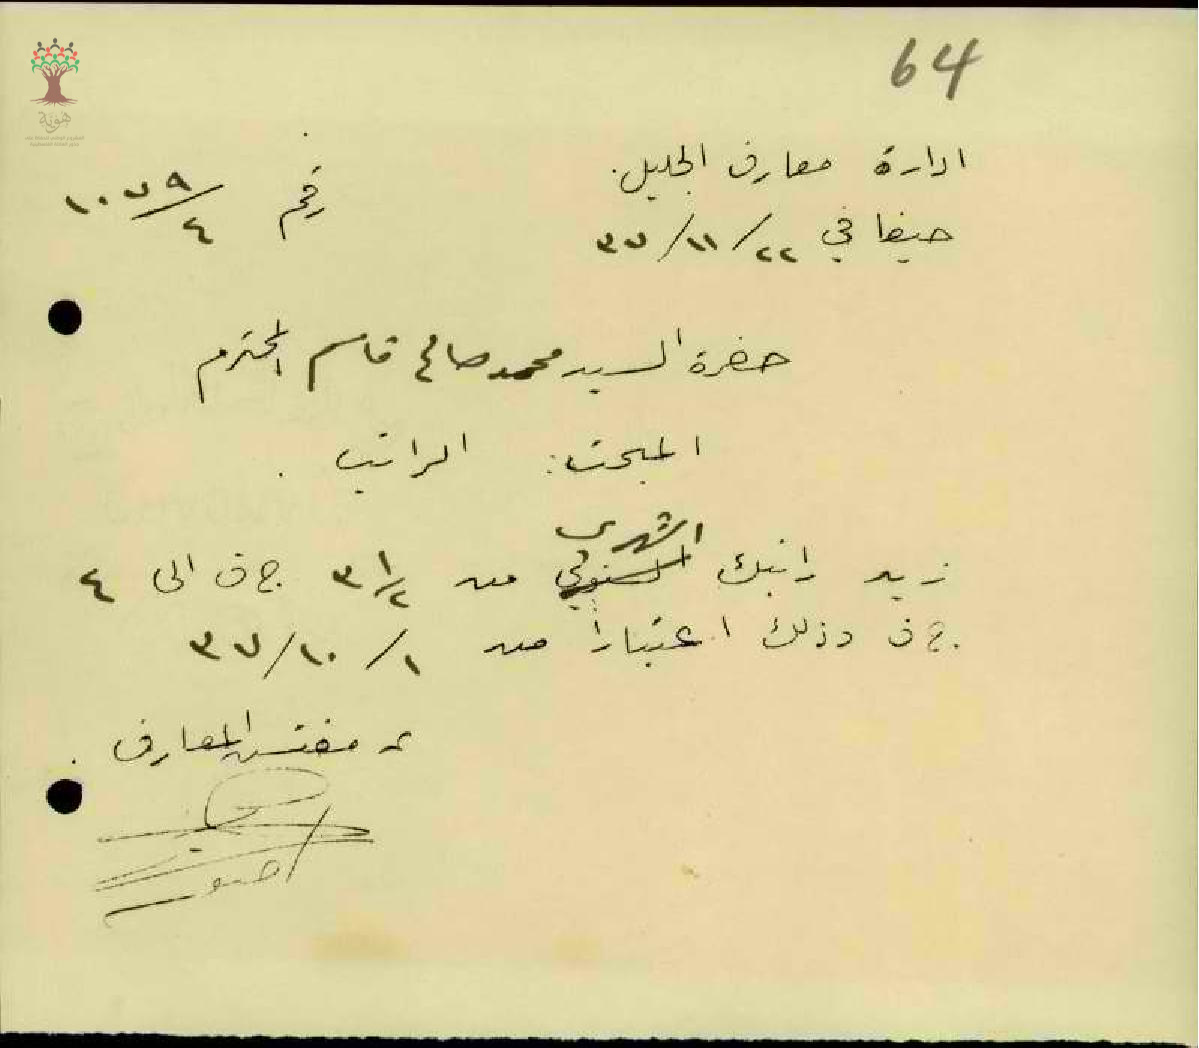 64
هوية
ادارة معارف الجليل.
رقم ١٠٧٩/٤
حيفا في ٢٢/١١/٣٧
حضرة السيد محمد صالح قاسم المحترم
المبحث: الراتب.
الشهري
زيد راتبك السنوي من ٣ ١/٢ ج ف الى ٤
ج ف وذلك اعتباراً من ١/١٠/٣٧.
عـ مفتش المعارف.